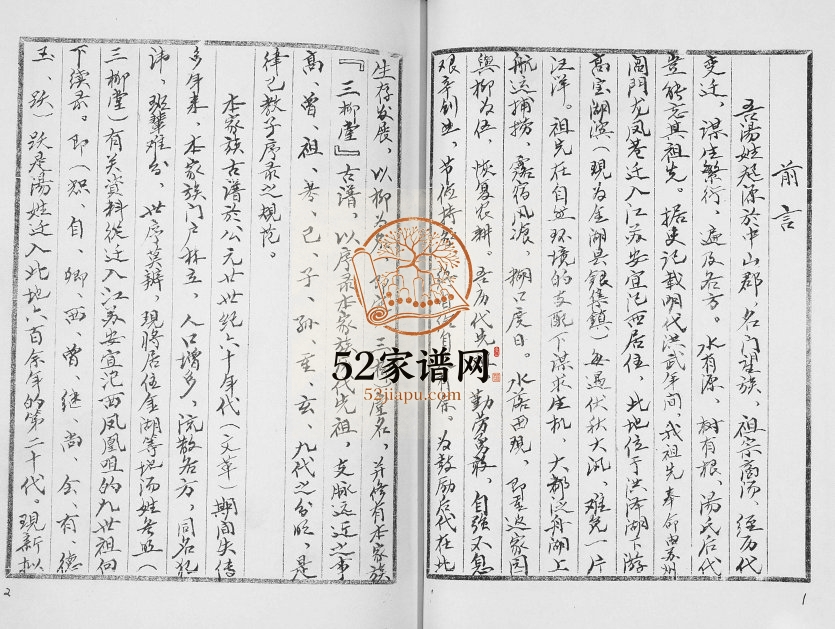 前言
吾湯姓起源於中山郡，名门望族，祖宗商汤，经历代
变迁，谋生繁衍，遍及各方。水有源，树有根，湯氏后代
岂能忘其祖先。据史记载明代洪武年间，我祖先奉命由苏州
阊門尤凤巷迁入江苏安宜氾西居住，此地位于洪泽湖下游
高宝湖濱（现为金湖县银集鎮）每遇伏秋大汛，难免一片
汪洋。祖先在自然环境的支配下谋求生机，大都泛舟湖上
航运捕捞，露宿风浪，糊口度日。水落西现，即重返家园
與柳为伍，恢复农耕，吾历代先 勤劳勇敢，自强不息
艰辛创业，节俭持家， 自 为鼓励后代在此
生存发展，以柳为 三柳 堂名，并修有本家族
『三柳堂』古谱，以序录本家族代先祖，支脉远近之事
高、曾、祖、考、己、子、孙、重、玄、九代之分眤，是
律己教子序录之规范。
本家族古谱於公元廿世纪六十年代（文革）期间失传
多年来，本家族门户林立，人口增多，流散各方，同名犯
讳，班輩难分，世序莫辨，現將居住金湖等地汤姓考照（
三柳堂）有关資料從迁入江苏安宜氾西凤凰咀的九世祖向
下续录。即（ 、自、 、西、曾、继、尚、会、有、德
玉、跃）跃是湯姓迁入此地六百余年的第二十代。现新拟
1
2
52家谱网
52jiapu.com